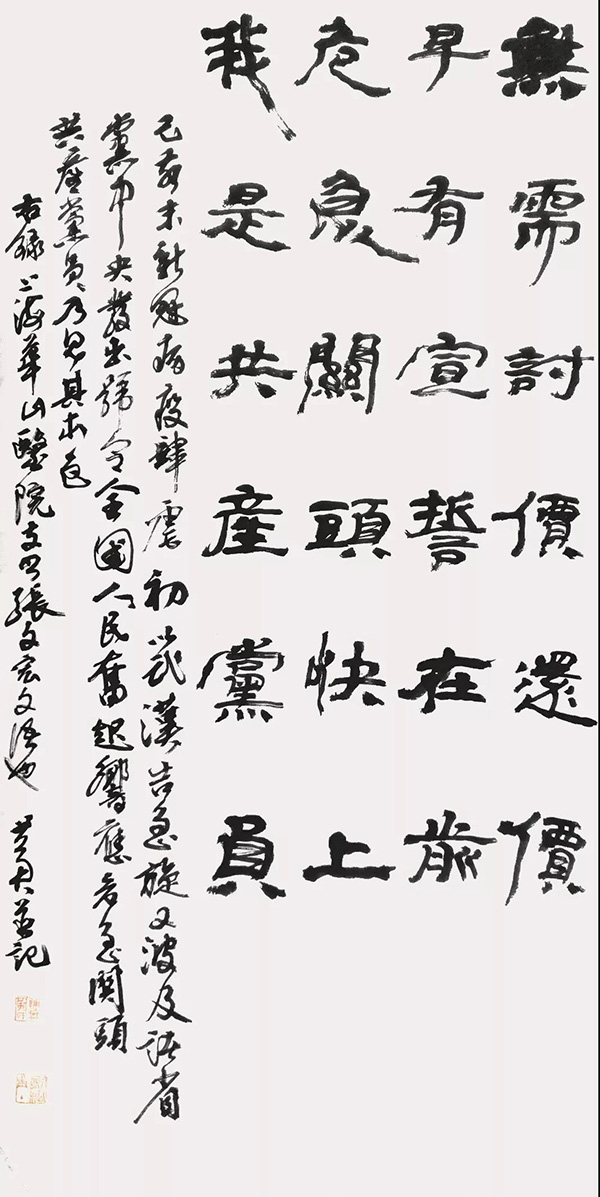 無需討價還價
早有宣誓在前
危急關頭快上
我是共產黨員
己亥末新冠病疫肆虐初武漢告急旋又波及諸省
黨中央發出號令全國人民奮起響應危急關頭
共產黨員乃見其本色
右錄上海華山醫院支書張文宏文語也 並記